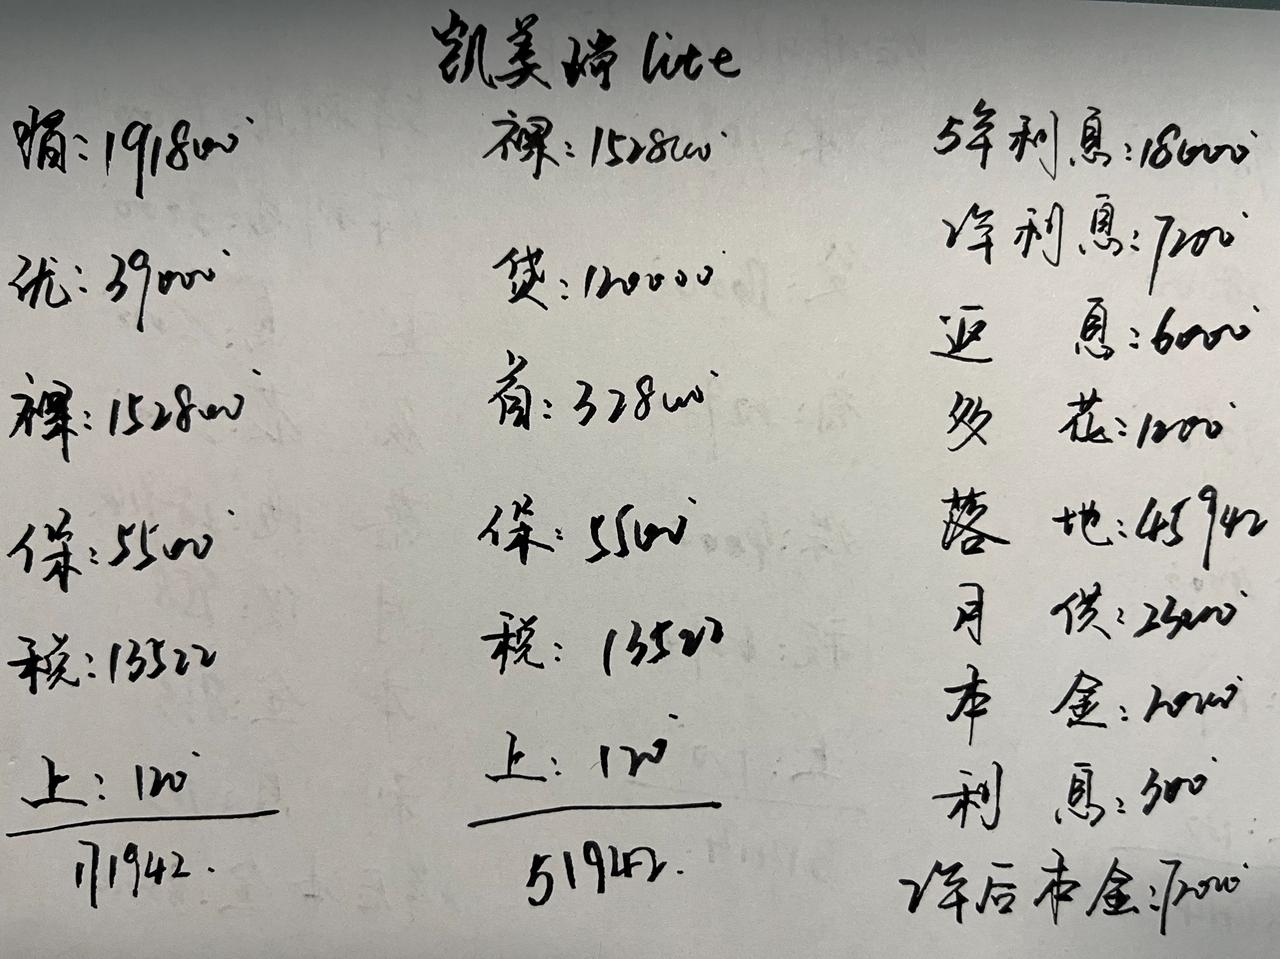 凯美瑞 lite
指: 191800
优: 39000
裸: 152800
保: 5500
税: 13522
上: 120
171942.
裸: 152800
贷: 120000
首: 32800
保: 5500
税: 13522
上: 120
51942.
5年利息: 18000
2年利息: 7200
返息: 6000
多花: 1200
落地: 45942
月供: 2300
本金: 2000
利息: 300
2年后本金: 72000